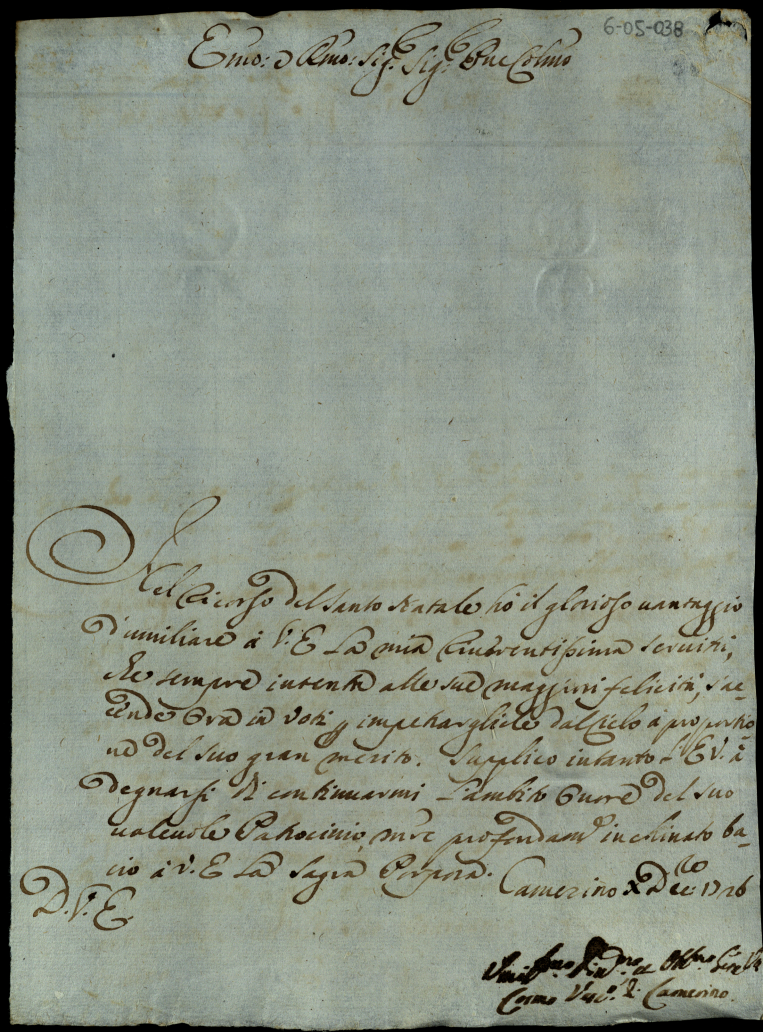 6-05-038
Emo: e Rmo: Sig.r Sig.r Pne Colmo
Nel Ricorso del Santo Natale hò il glorioso uantaggio
d'umiliare à V: E La mia riuerentissima seruitù,
che sempre intenta alle sue maggiori felicità, s'ac-
cende ora in Voti p impetrargliele dal Cielo à proportio-
ne del suo gran merito. Supplico intanto L'E V. à
degnarsi di continuarmi L'ambito onore del suo
ualeuole Patrocinio, mre profondamte inclinato ba-
cio à V. E La Sagra Porpora. Camerino X Dcre 1726
D. V. E.
Umilmo Diumo et Obbmo Sere
Cosmo Vesco di Camerino